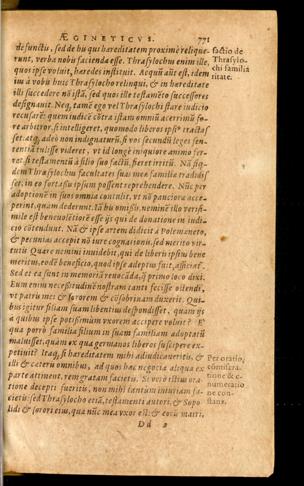 ÆGINETICVS. 771
de functis, sed de his qui hæreditatem proximè relique-
runt, verba nobis facienda esse. Thrasylochus enim ille,
quos ipse voluit, hæredes instituit. Æquū aūt est, idem
iis à vobis huic Thrasylocho relinqui, & in hæreditate
illi succedere nō istā, sed quos ille testamēto successores
designauit. Neq; tamē ego vel Thrasylochi stare iudicio
recusarē:
re arbitror, si intelligeret, quomodo liberos ipsi tractas-
set. atq; adeò non indignatur, si vos secundū leges sen-
tentiā tulisse videret, vt id longè iniquiore animo fer-
ret, si testamentū à filio suo factū, fieret irritū. Nā siq-
dem Thrasylochus facultates suas meæ familiæ tradidis
set, in eo fortassis ipsum possent reprehendere. Nūc per
adoptionē in suos omnia contulit, vt nō pauciora acce-
perint, quàm dederunt.
mile est beneuolētiorē esse
cō cōtendunt. Nā & ipse artem didicit à Polemæneto,
& pecunias accepit nō iure cognationis, sed merito vir-
tutis
meritum, eodē beneficio, quod ipse adeptus fuit,
Sed et ea sunt in memoriā reuocāda, q̃ primo loco dixi.
Eum enim necessitudinē nostram tanti fecisse ostendi,
vt patris mei & sororem & cōsobrinam duxerit. Qui-
bus igitur filiam suam libentius despondisset, quàm iis
à quibus ipse potissimùm vxorem accipere voluit? E'
qua porrò familia filium in suam familiam adoptatū
maluisset, quàm ex qua germanos liberos suscipere ex-
petiuit? Itaq; si hæreditatem mihi adiudicaueritis, &
illi & cæteris omnibus, ad quos hæc negocia aliqua ex
parte attinent, rem gratam facietis. Si verò istius ora-
tione decepti fueritis, non mihi tantùm iniuriam fa-
cietis: sed Thrasylocho etiā, testamenti autori, & Sopo
lidi & sorori eius, quæ nūc mea vxor est: & eorū matri,
Dd 2
factio de
Thrasylo-
chi familia
ritate.
Peroratio,
cōmisera-
tione & e-
numeratio
ne con-
stans.